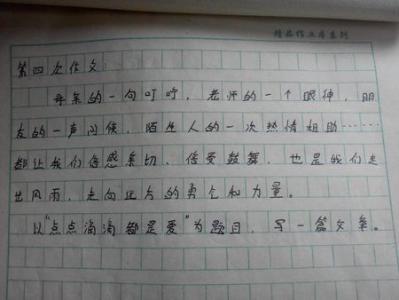 精品作业本系列
第四次作文:
母亲的一句叮咛,老师的一个眼神,朋
友的一声问候,陌生人的一次热情相助……
都让我们倍感亲切,倍受鼓舞,也是我们走
出风雨,走向远方的勇气和力量。
以“点点滴滴都是爱”为题目,写一篇文章。